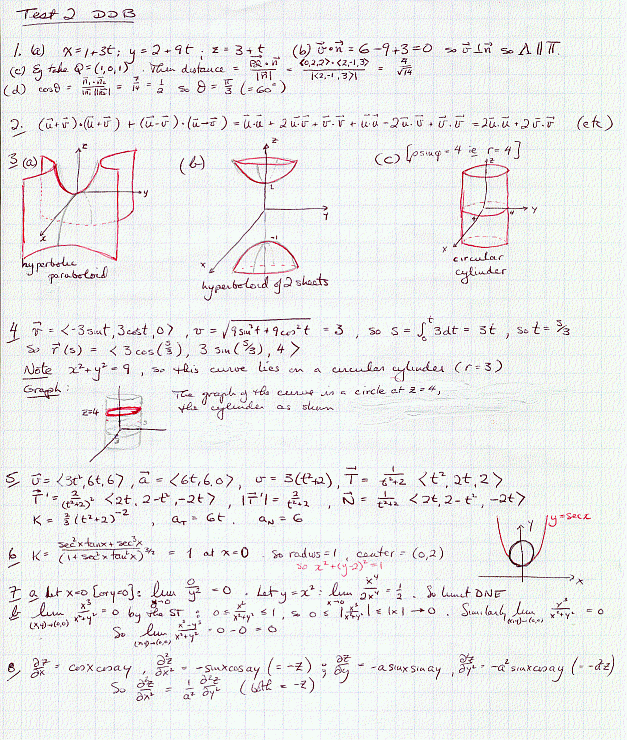 Test 2 DDB
1. (a) x = 1+3t ; y = 2+9t ; z = 3+t (b) v⃗•n⃗ = 6-9+3=0 so v⃗⊥n⃗ so Λ∥Π
(c) Eg take Q = (1,0,1). Then distance = |PQ•n⃗|/|n⃗| = <0,2,2>•<2,-1,3>/|<2,-1,3>| = 4/√14
(d) cosθ = n⃗₁•n⃗₂/|n⃗₁||n⃗₂| = 7/14 = 1/2 so θ = π/3 (=60°)
2. (u⃗+v⃗)•(u⃗+v⃗) + (u⃗-v⃗)•(u⃗-v⃗) = u⃗•u⃗ + 2u⃗•v⃗ + v⃗•v⃗ + u⃗•u⃗ - 2u⃗•v⃗ + v⃗•v⃗ = 2u⃗•u⃗ + 2v⃗•v⃗ (etc)
3 (a) z y x
hyperbolic
paraboloid
(b) z 1 y -1 x
hyperboloid of 2 sheets
(c) [ρsinφ = 4 ie r = 4]
z 4 4 y x
circular
cylinder
4 v⃗ = <-3sint, 3cost, 0>, v = √(9sin²t + 9cos²t) = 3, so s = ∫₀ᵗ 3dt = 3t, so t = s/3
So r⃗(s) = <3cos(s/3), 3sin(s/3), 4>
Note x²+y² = 9, so this curve lies on a circular cylinder (r=3)
Graph: The graph of the curve is a circle at z = 4,
z=4 the cylinder as shown
3
5 v⃗ = <3t², 6t, 6>, a⃗ = <6t, 6, 0>, v = 3(t²+2), T⃗ = 1/(t²+2) <t², 2t, 2>
T⃗' = 2/(t²+2)² <2t, 2-t², -2t>, |T⃗'| = 2/(t²+2), N⃗ = 1/(t²+2) <2t, 2-t², -2t>
K = 2/3 (t²+2)⁻², a_T = 6t, a_N = 6
6 K = (sec²x tanx + sec³x)/(1+sec²x tan²x)^(3/2) = 1 at x=0. So radius = 1, center = (0,2)
so x²+(y-2)²=1
y y=secx x
7 a Let x=0 [or y=0]: lim y→0 0/y² = 0. Let y = x²: lim x→0 x⁴/2x⁴ = 1/2. So limit DNE
b lim (x,y)→(0,0) x³/(x²+y²) = 0 by the ST: 0 ≤ x²/(x²+y²) ≤ 1, so 0 ≤ |x³/(x²+y²)| ≤ |x| → 0. Similarly lim (x,y)→(0,0) y³/(x²+y²) = 0
So lim (x,y)→(0,0) (x³-y³)/(x²+y²) = 0-0 = 0
8 ∂z/∂x = cosx cosay, ∂²z/∂x² = -sinx cosay (= -z); ∂z/∂y = -a sinx sinay, ∂²z/∂y² = -a² sinx cosay (= -a²z)
So ∂²z/∂x² = 1/a² ∂²z/∂y² (both = -z)